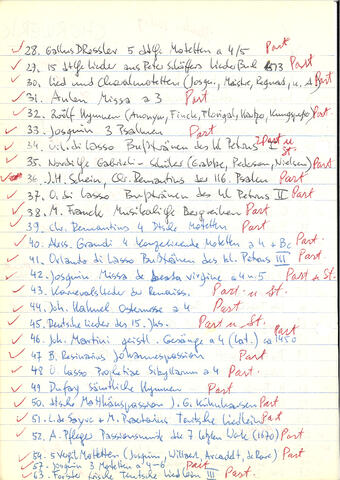 28. Gallus Dressler 5 dtsche Motetten a 4/5 Part
29. 15 dtsche Lieder aus Peter Schöffers Liederbuch 1513 Part
30. Lied und Choralmotetten (Josqu., Regnart, u. a. Part
31. Missa a 3 Part
32. Zwölf Hymnen (Anonym, Finck, Part
33. Josquin 3 Psalmen Part
34. Orl. di Lasso Bußtränen des hl Petrus I Part u St.
35. Nordische Gabrieli-Schüler (Grabbe, Pederson, Nielsen) Part
36. J.H. Schein, Chr. Demantius des 116. Psalm Part
37. O. di Lasso Bußtränen des hl Petrus II Part
38. M. Franck Musikalische Bergreihen Part
39. Chr. Demantius 4 Dtsche Motetten Part
40. Aless. Grandi 4 Motetten a 4 + Bc Part.
41. Orlando di Lasso Bußtränen des hl. Petrus III Part
42. Josquin Missa de beata virgine a 4 u. 5 Part u St.
43. Karnevalslieder der Renaiss. Part. u St.
44. Joh. Hähnel Ostermesse a 4 Part
45. Deutsche Lieder des 15. Jhs. Part u St.
46. Joh. Martini geistl. Gesänge a 4 (lat.) ca 1450 Part
47 B. Resinarius Johannespassion Part
48 O Lasso Prophetiae Sibyllarum a 4 Part
49 Dufay sämtliche Hymnen Part
50. dtsche Matthäuspassion J. G. Kühnhausen Part
51. L. de Sayve u M. Praetorius Teutsche Liedlein Part
52. A. Pfleger Passionsmusik die 7 letzten Worte (1670) Part
54. 5 Vergil Motetten (Josquin, Willaert, Arcadelt, de Rore) Part
57. Josquin 3 Motetten a 4-6 Part
63. Forster frische Teutsche Liedlein III Part